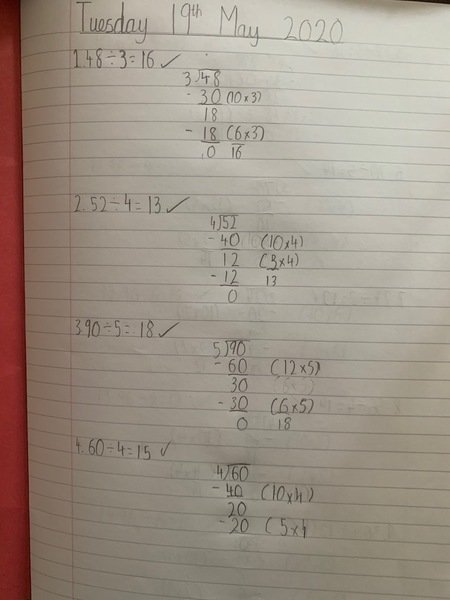 Tuesday 19th May 2020
1.48÷3=16 ✓
3√48
- 30 (10×3)
18
- 18 (6×3)
0 16
2.52÷4=13 ✓
4√52
- 40 (10×4)
12 (3×4)
- 12 13
0
3.90÷5=18 ✓
5√90
- 60 (12×5)
30
- 30 (6×5)
0 18
4.60÷4=15 ✓
4√60
- 40 (10×4)
20
- 20 (5×4